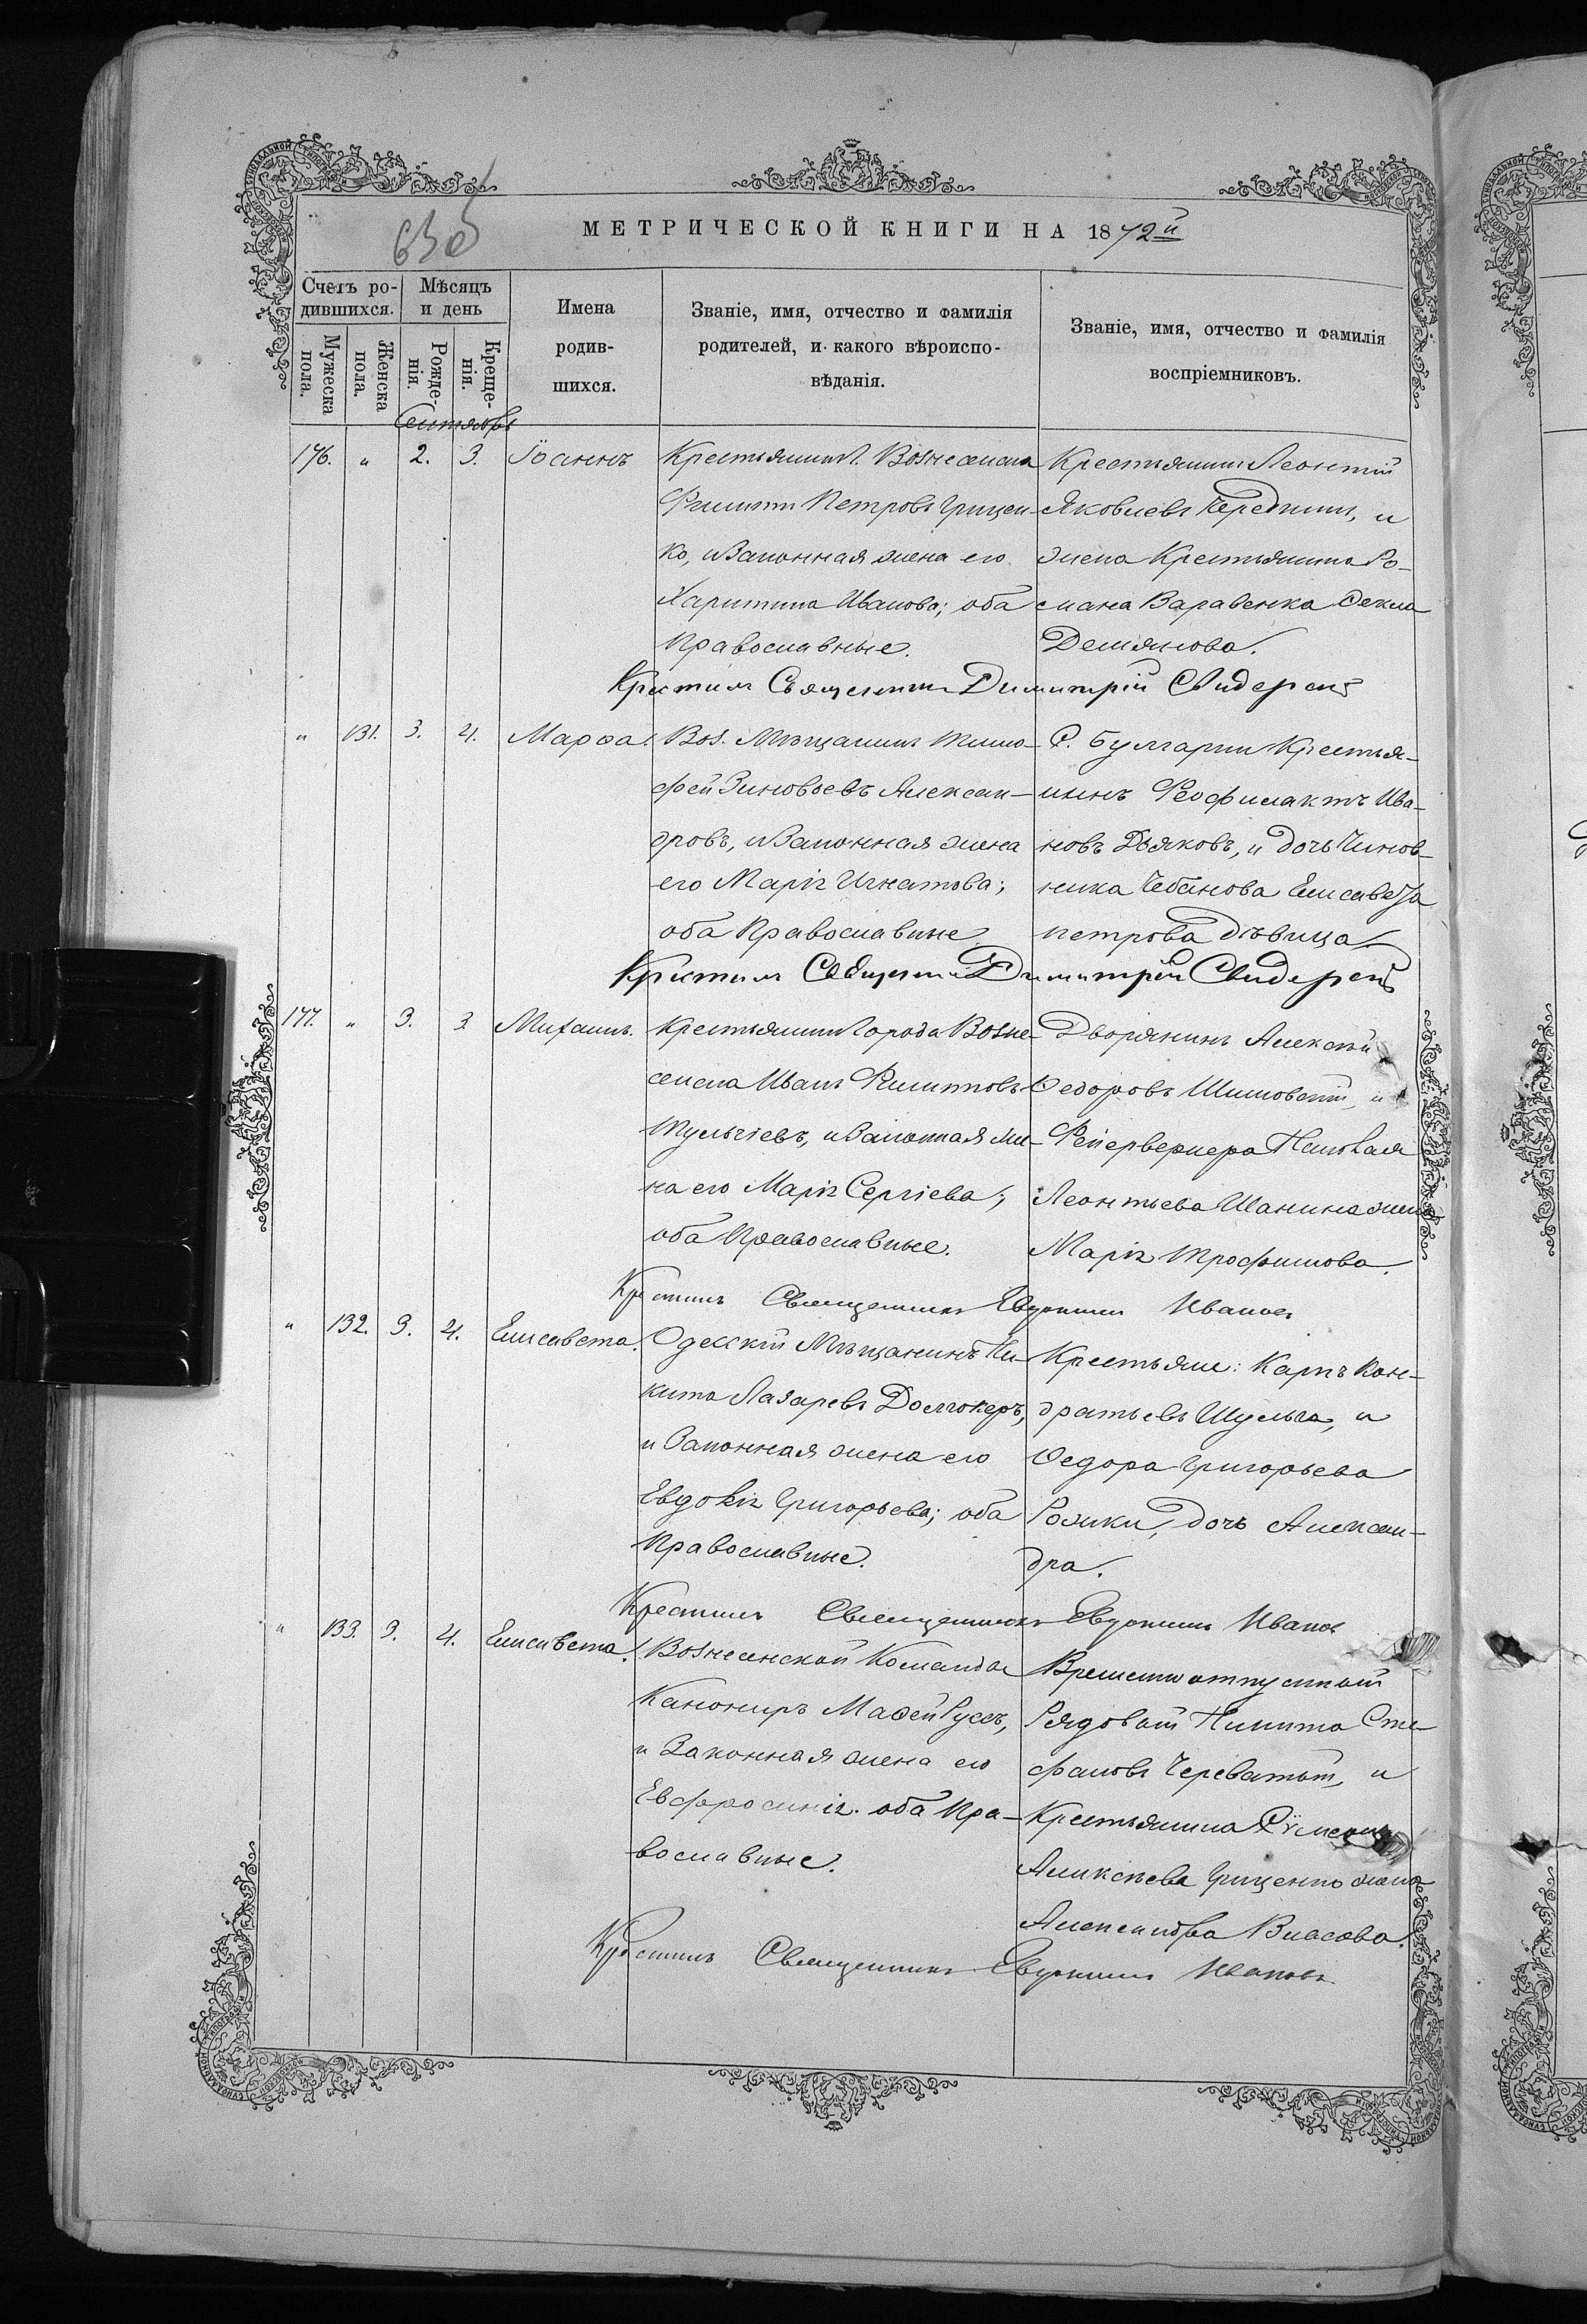 МЕТРИЧЕСКОЙ КНИГИ НА 1872й
Счетъ ро-
дившихся.
Мѣсяцъ
и день
Мужеска
пола.
Женска
пола.
Рожде-
нія.
Креще-
нія.
Имена
родив-
шихся.
Званіе, имя, отчество и фамилія
родителей, и какого вѣроиспо-
вѣданія.
Званіе, имя, отчество и фамилія
воспріемниковъ.
Сентябрь
176. " 2. 3. Іоаннъ
Крестьянинъ г. Вознесенска
Филиппъ Петровъ Грицен-
ко, и Законная жена его
Харитина Иванова; оба
Православные.
Крестьянинъ Леонтій
Яковлевъ Чередникъ, и
жена Крестьянина Ро-
мана Варавенка Ѳекла
Демянова.
Крестилъ Священникъ Димитрій Свидерскій
" 131. 3. 4. Марѳа.
Воз. Мѣщанинъ Тимо-
фей Зиновьевъ Алексан-
дровъ, и Законная жена
его Марія Игнатова;
оба Православные
С. Булгарки Крестья-
нинъ Феофилактъ Ива-
новъ Дьяковъ, и дочь Чинов-
ника Чебанова Елисавета
Петрова дѣвица
Крестилъ Священникъ Димитрій Свидерскій
177. " 3. 3 Михаилъ.
Крестьянинъ Города Возне-
сенска Иванъ Филипповъ
Тульчіевъ, и Законная же-
на его Марія Сергіева;
оба Православные.
Дворянинъ Алексѣй
Ѳедоровъ Шимовскій, и
Фейерверкера
Леонтьева Шанина жена
Марія Трофимова.
Крестилъ Священникъ Евфимій Ивановъ
" 132. 3. 4. Елисавета.
Одесскій Мѣщанинъ Ни-
кита Лазаревъ Долгокеръ,
и Законная жена его
Евдокія Григорьева; оба
Православные.
Крестьяне: Карпъ Кон-
дратьевъ Шульга, и
Ѳедора Григорьева
Рожки, дочь Алексан-
дра.
Крестилъ Священникъ Евфимій Ивановъ
" 133. 3. 4. Елисавета.
Вознесенской Команды
Канониръ Маѳей Русъ,
и Законная жена его
Евфросинія. оба Пра-
вославные.
Временно отпускной
Рядовой Никита Сте-
фановъ Череватый, и
Крестьянина
Алексѣева Гриценко жена
Александра Власова.
Крестилъ Священникъ Евфимій Ивановъ